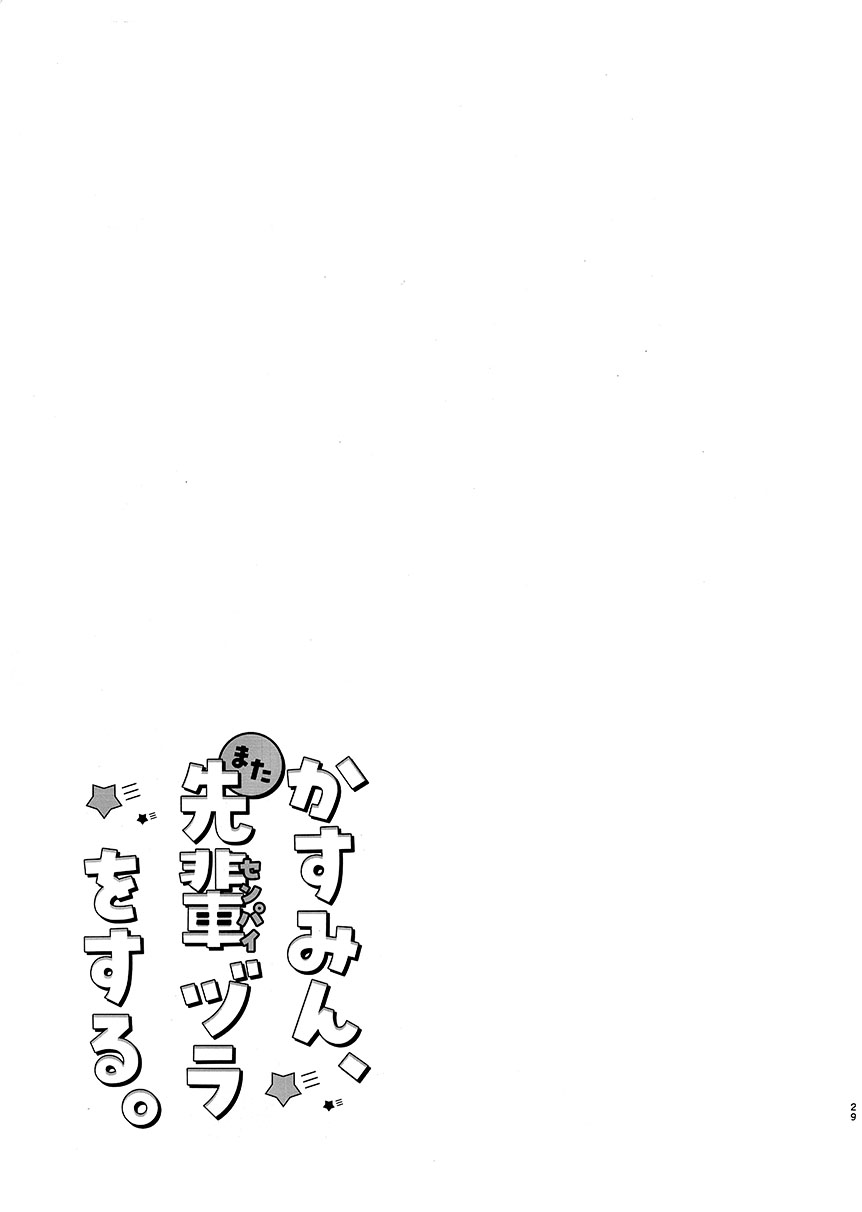 かすみん、
また
先輩ヅラ
センパイ
をする。
29